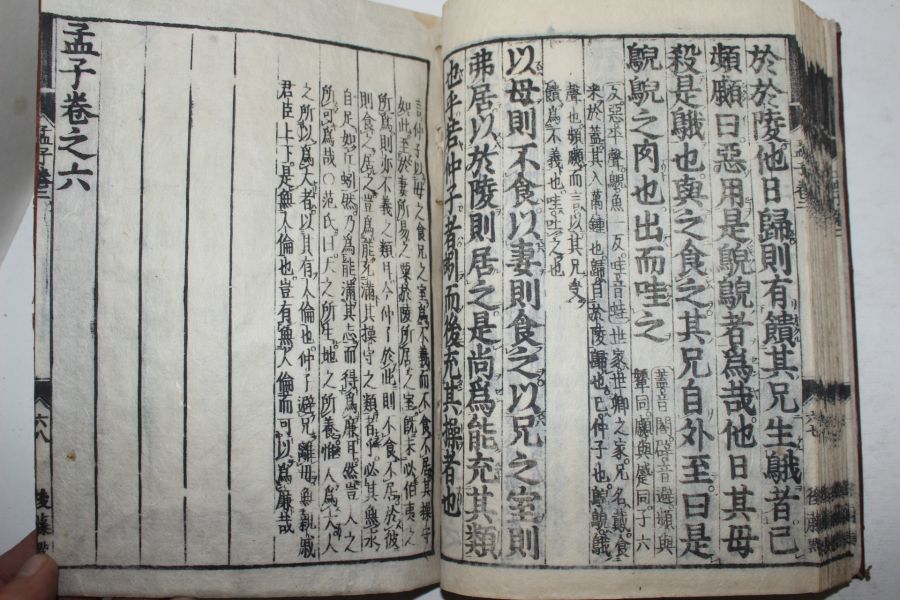 於於陵他日歸則有饋其兄生鵝者己
頻顣曰惡用是鶃鶃者爲哉他日其母
殺是鵝也與之食之其兄自外至曰是
鶃鶃之肉也出而哇之
蓋音閤辟音避頻與
顰同顣與蹙同子六
反惡平聲鶃魚一反哇音蛙世家世卿之家兄名戴食
采於蓋其入萬鍾也歸自於陵歸也己仲子也鶃鶃鵝
聲也頻顣而言以其兄
饋爲不義也哇吐之也
以母則不食以妻則食之以兄之室則
弗居以於陵則居之是尚爲能充其類
也乎若仲子者蚓而後充其操者也
言仲子以母之食兄之室爲不義而不食不居其操守
如此至於妻所易之粟於陵所居之室既未必伯夷之
所爲則亦不義之類耳今仲子於此則不食不居於彼
則食之居之豈爲能充滿其操守之類者乎必其無求
自足如丘蚓然乃爲能滿其志而得爲廉耳然豈人之
所可爲哉○范氏曰天之所生地之所養惟人爲大人
之所以爲大者以其有人倫也仲子避兄離母無親戚
君臣上下是無人倫也豈有無人倫而可以爲廉哉
孟子卷之六
孟子卷三
六八
後藤點